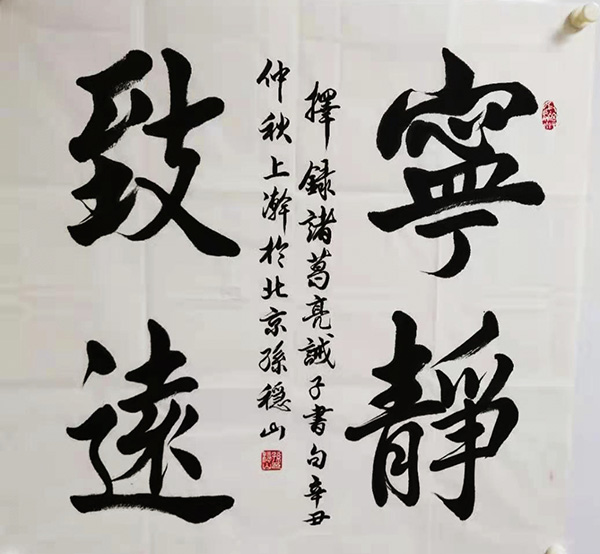 寧靜
致遠
擇録諸葛亮誡子書句辛丑
仲秋上澣於北京孫穩山